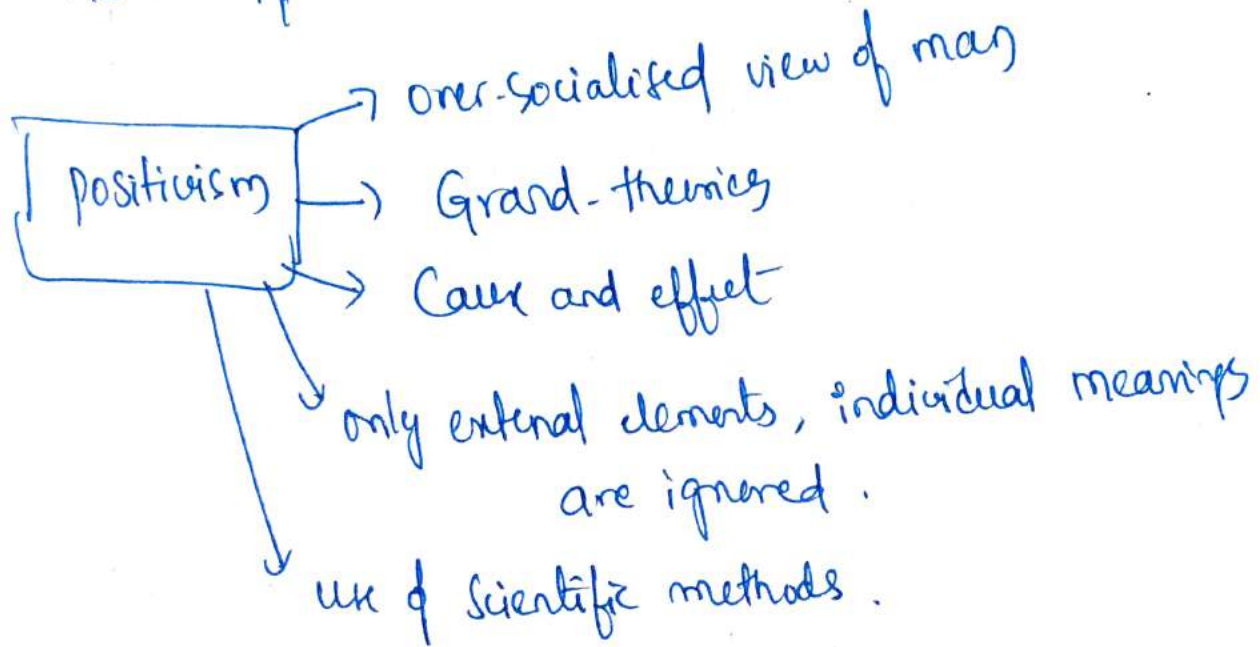 over-socialised view of man
Positivism
Grand-theories
Cause and effect
only external elements, individual meanings
are ignored.
use of scientific methods.